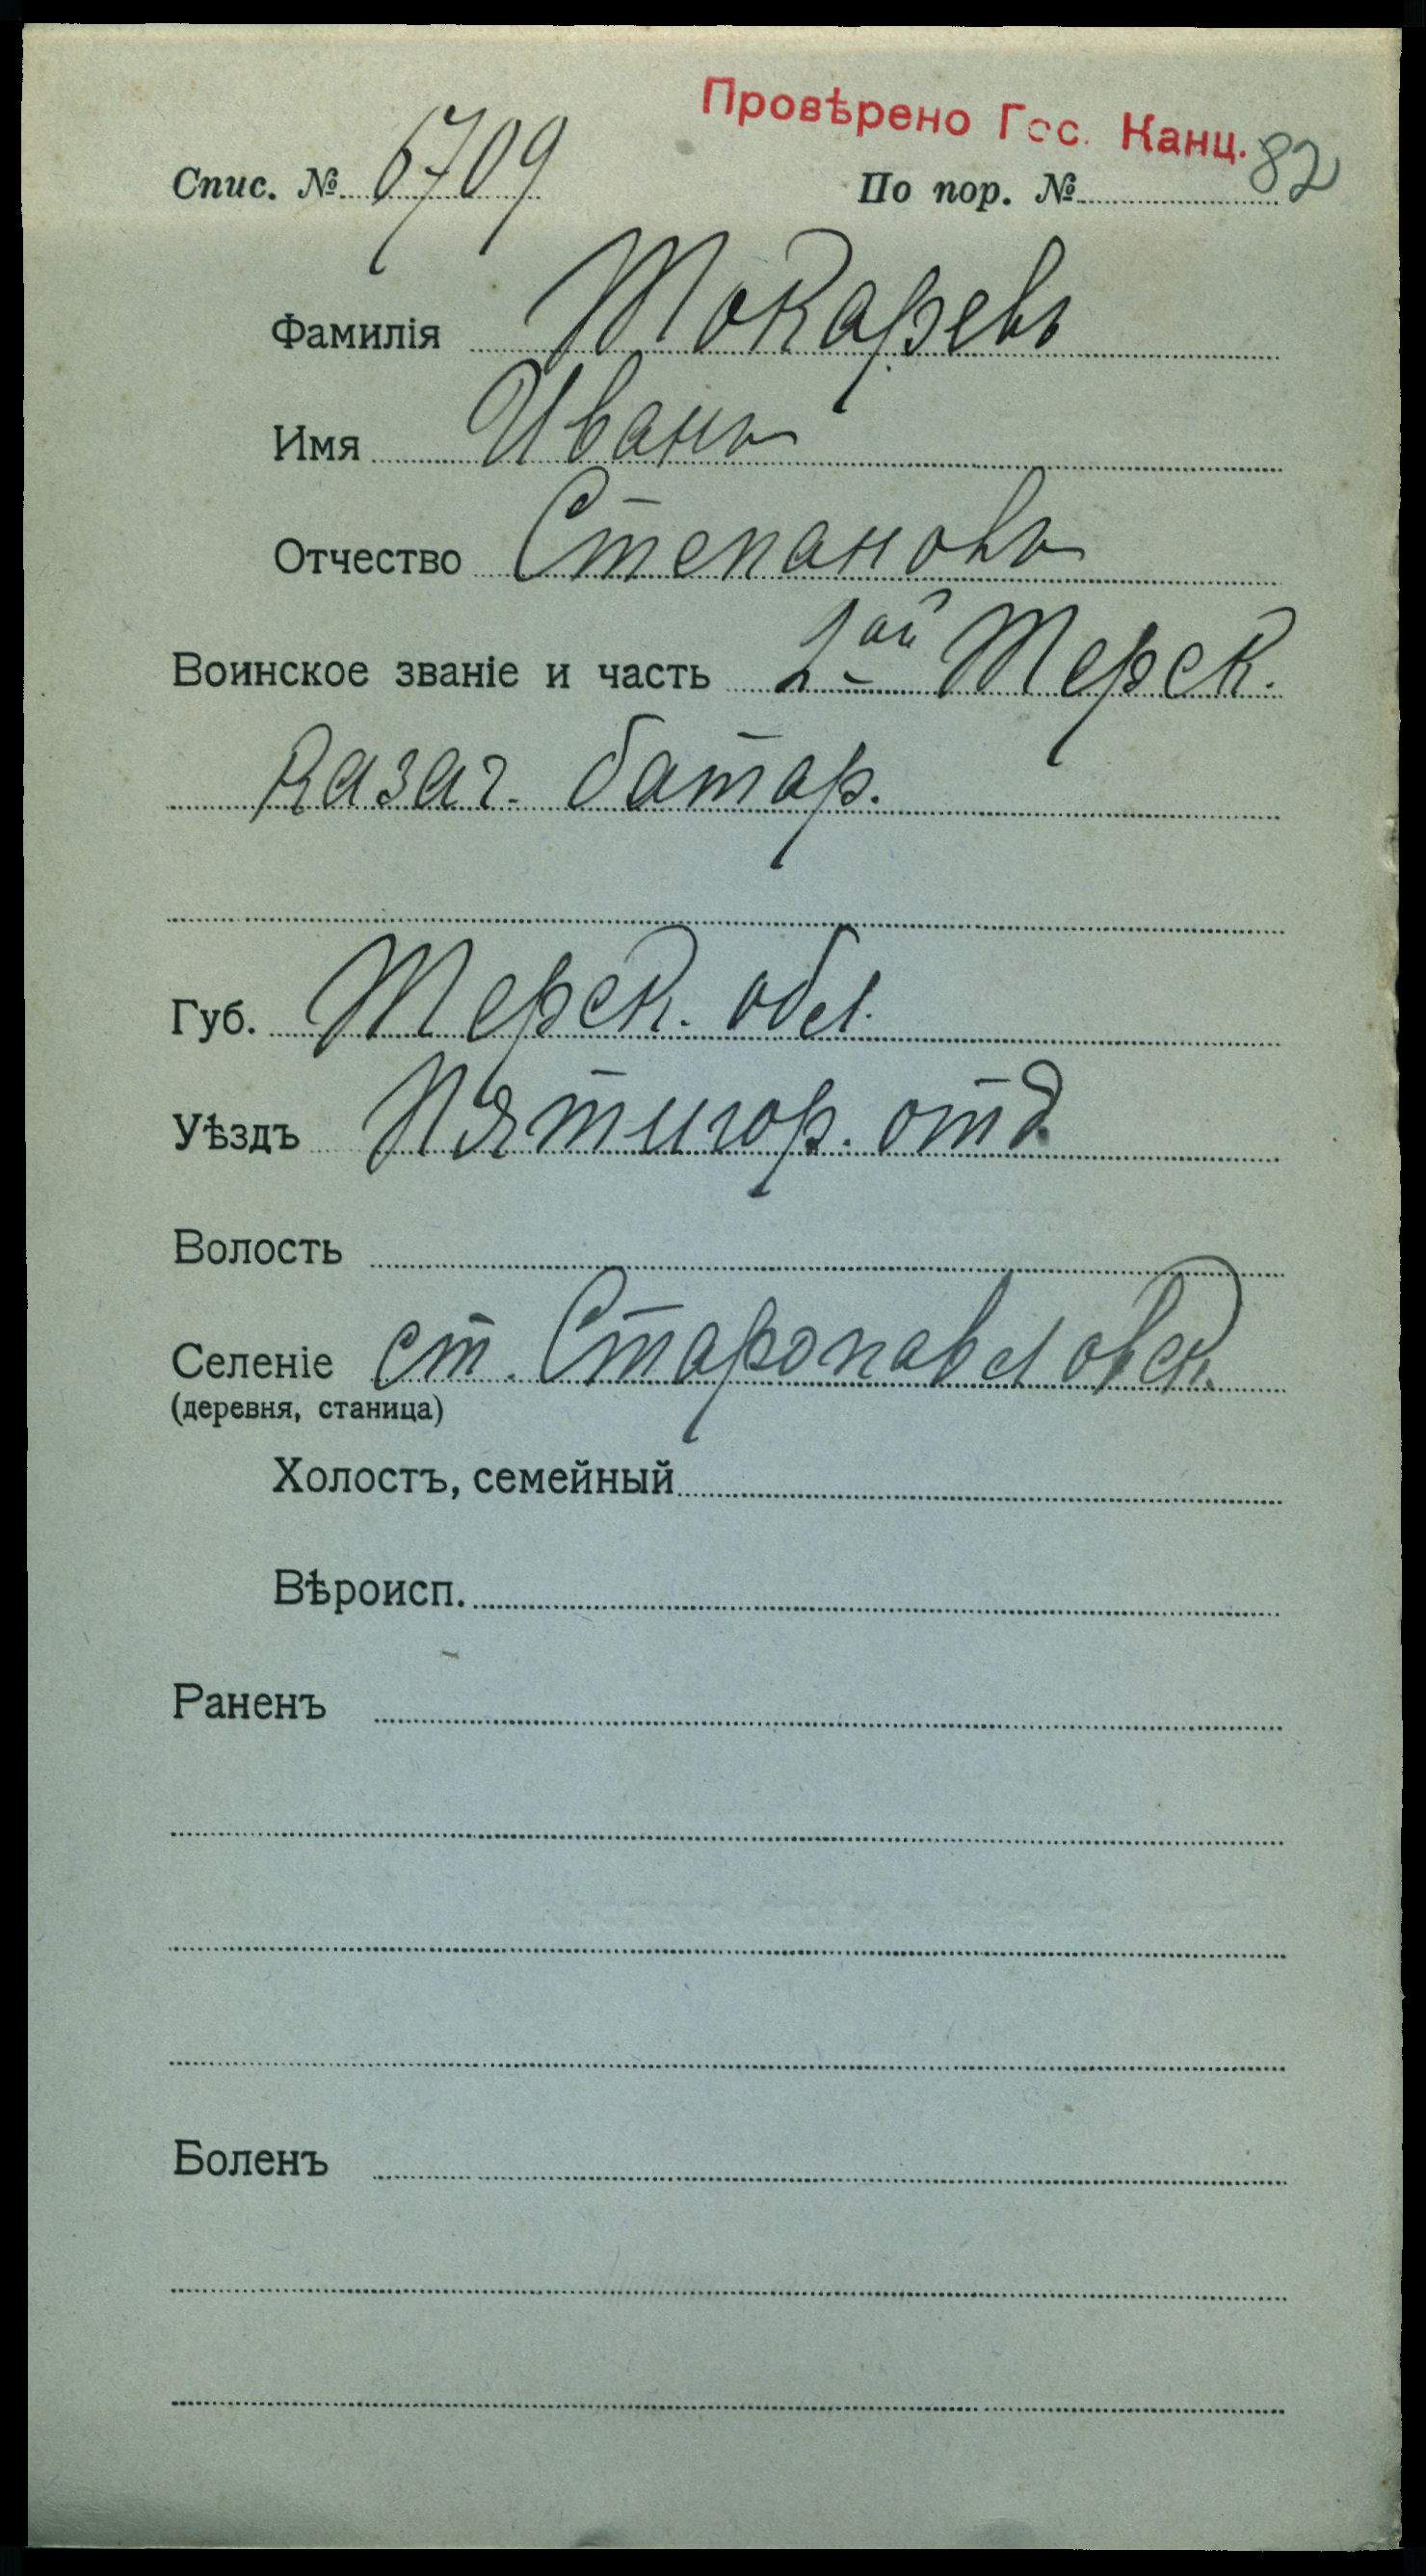 Провѣрено Гос. Канц.
Спис. № 6709 По пор. № 82
Фамилія Токаревъ
Имя Иванъ
Отчество Степановъ
Воинское званіе и часть 2ой Терск.
казач. батар.
Губ. Терск. обл.
Уѣздъ Пятигор. отд.
Волость
Селеніе ст. Старопавловск.
(деревня, станица)
Холостъ, семейный
Вѣроисп.
Раненъ
Боленъ